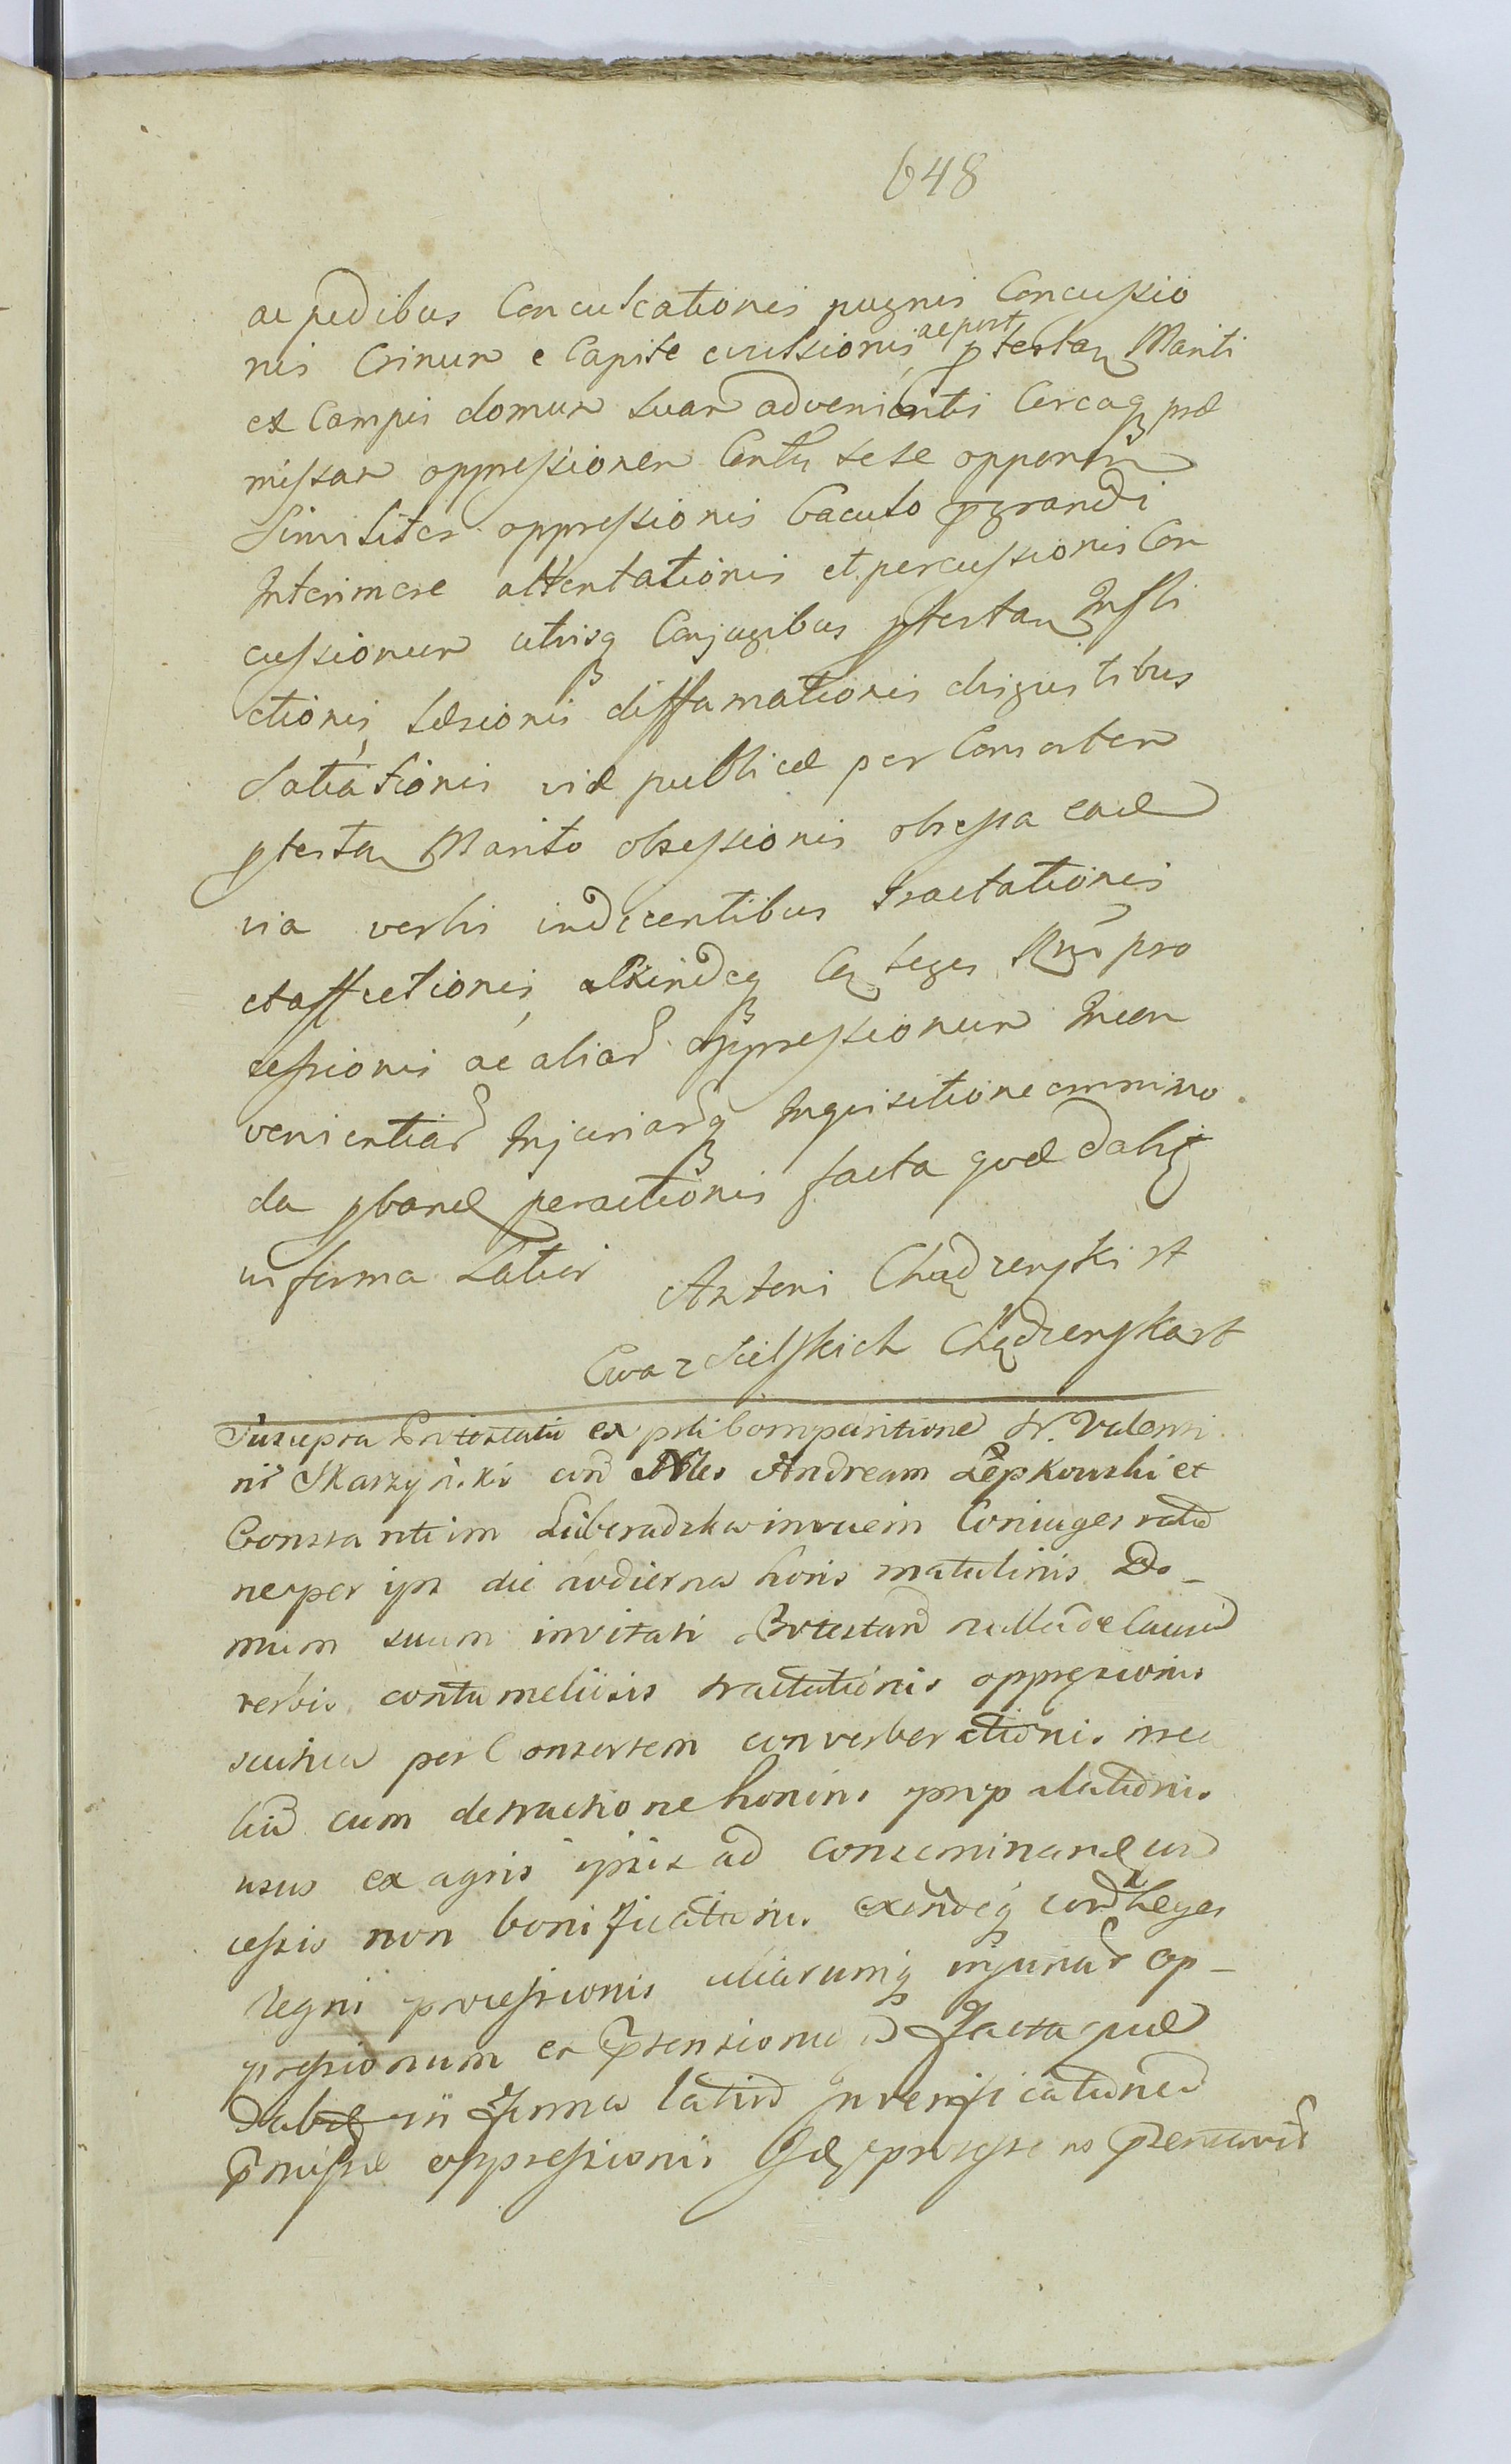 648
ac pedibus Conculcationis pugnis Concussio
nis Crinum e Capite evulsionis ac post ptestan Mariti
ex Campis domum suam advenientis Circaq præ
missam oppressionem Conthli sese opponen
Similiter oppressionis baculo pgrandi
Interimere attentationis et percussionis Con
cussionum utrisq Conjugibus ptestan Infli
ctionis, læsionis diffamationis disgustibus
Satiationis viæ publicæ per Consortem
ptestan Marito obsessionis obsessa eadē
via verbis indicentibus tractationis
et affectionis, exindeq Con leges Rgni pro
cessionis ac aliar oppressionum Incon
venientiar Injuriarq Inquisitione omnimo
da pband peractionis facta quæ dabit
in forma Latiori
Antoni Chądzyński st
Ewa z Sielskich Chądzynska st
Jusupra Protestatio ex pte Comparitione N. Valenti
ni Skarzyński con Nbles Andream Łępkowski et
Constantiam Liberadzka invicem Coniuges ratie
ne per ips die hodierna horis matutinis Do-
mum suum invitati Protestan nulla de Causa
verbis contumeliosis tractationis oppressionis
scutica per Consortem conversberationis
cum detractione honoris
usus ex agris ipsis ad Conseminand
cessis non bonificationis exindeq con Leges
regni processionis aliarumq injuriar op-
pressionum et Ptensionu Facta quæ
dabit in Forma latiori In verificationem
Pmissæ oppressionis